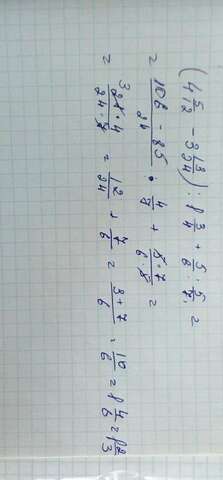 (4 5/12 - 3 13/24) : 1 3/4 + 5/6 : 5/7 =
= 106 - 85/24 · 4/7 + 5·7/6·5 =
= 3 21·4/24·7 = 12/24 + 7/6 = 3+7/6 = 10/6 = 1 4/6 = 1 2/3